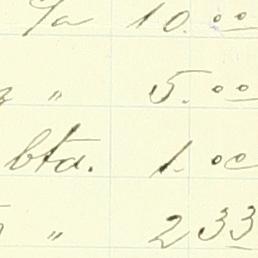 10.00
" 5.00
bta. 1.00
" 2 33